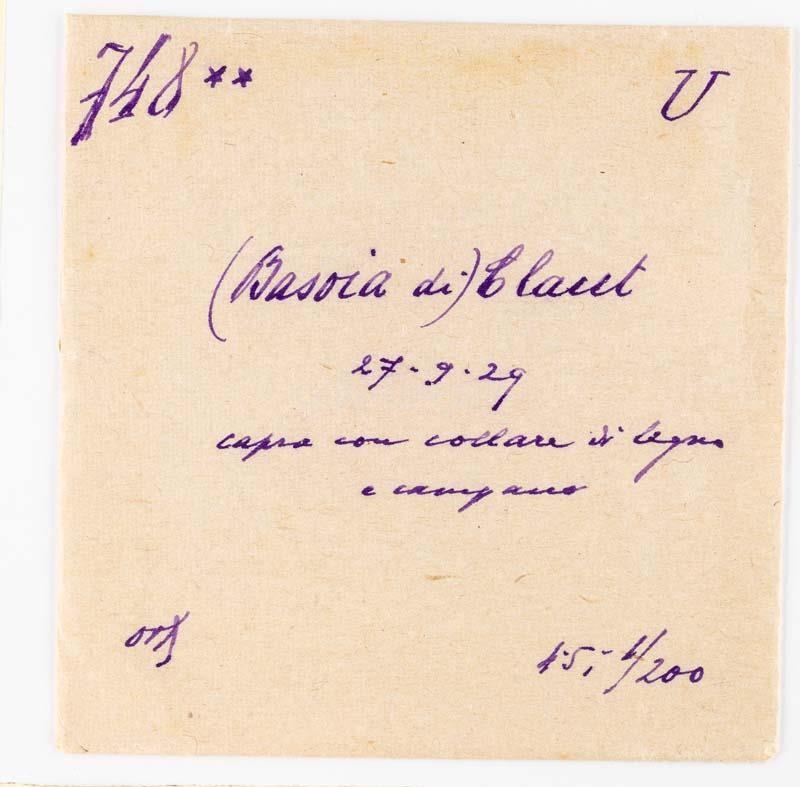 748 **
U
(Basoia di) Claut
27-9-29
capra con collare di legno
e campano
ort
4.5; 1/200